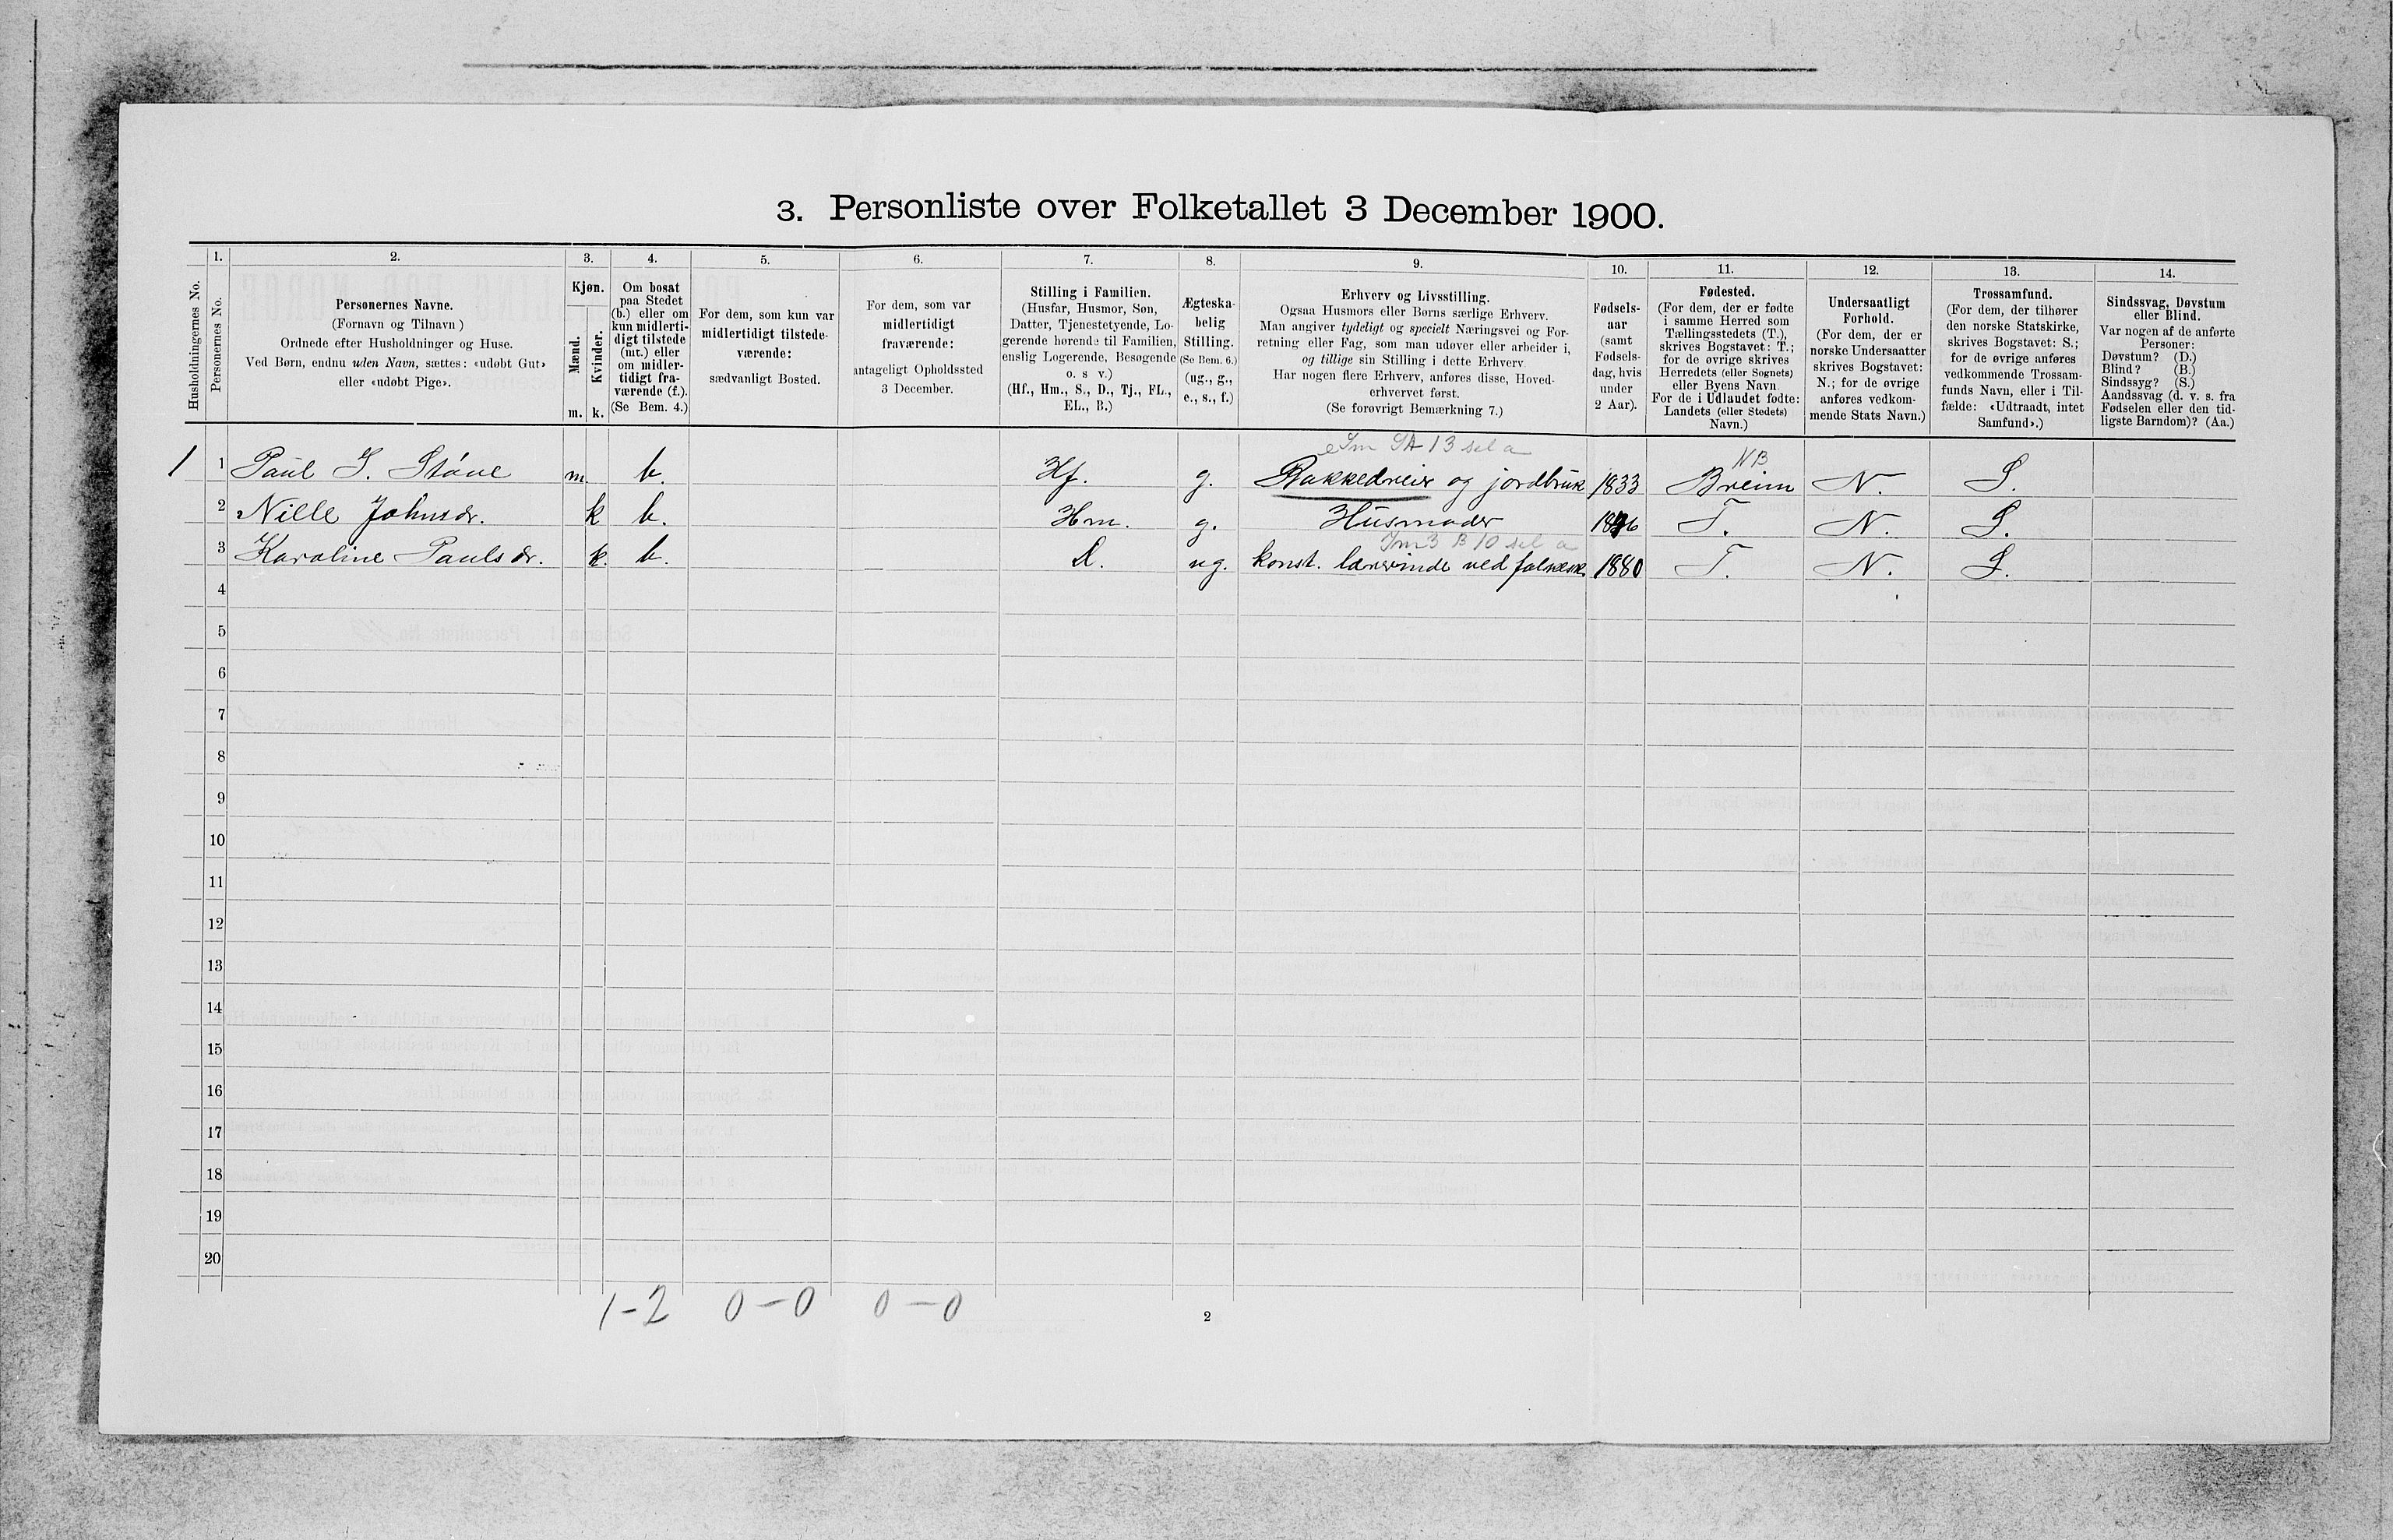 3. Personliste over Folketallet 3 December 1900.
Husholdningernes No.
1.
Personernes No.
2.
Personernes Navne.
(Fornavn og Tilnavn)
Ordnede efter Husholdninger og Huse.
Ved Børn, endnu uden Navn, sættes: «udøbt Gut»
eller «udøbt Pige».
3.
Kjøn.
Mænd.
Kvinder.
m. k.
4.
Om bosat
paa Stedet
(b.) eller om
kun midlerti-
digt tilstede
(mt.) eller
om midler-
tidigt fra-
værende (f.).
(Se Bem. 4.)
5.
For dem, som kun var
midlertidigt tilstede-
værende:
sædvanligt Bosted.
6.
For dem, som var
midlertidigt
fraværende:
antageligt Opholdssted
3 December.
7.
Stilling i Familien.
(Husfar, Husmor, Søn,
Datter, Tjenestetyende, Lo-
gerende hørende til Familien,
enslig Logerende, Besøgende
o. s v.)
(Hf., Hm., S., D., Tj., FL.,
EL., B.)
8.
Ægteska-
belig
Stilling.
(Se Bem. 6.)
(ug., g.,
e., s., f.)
9.
Erhverv og Livsstilling.
Ogsaa Husmors eller Børns særlige Erhverv.
Man angiver tydeligt og specielt Næringsvei og For-
retning eller Fag, som man udøver eller arbeider i,
og tillige sin Stilling i dette Erhverv
Har nogen flere Erhverv, anføres disse, Hoved-
erhvervet først.
(Se forøvrigt Bemærkning 7.)
10.
Fødsels-
aar
(samt
Fødsels-
dag, hvis
under
2 Aar).
11.
Fødested.
(For dem, der er fødte
i samme Herred som
Tællingsstedets (T.),
skrives Bogstavet: T.;
for de øvrige skrives
Herredets (eller Sognets)
eller Byens Navn
For de i Udlandet fødte:
Landets (eller Stedets)
Navn.)
12.
Undersaatligt
Forhold.
(For dem, der er
norske Undersaatter
skrives Bogstavet:
N.; for de øvrige
anføres vedkom-
mende Stats Navn.)
13.
Trossamfund.
(For dem, der tilhører
den norske Statskirke,
skrives Bogstavet: S.;
for de øvrige anføres
vedkommende Trossam-
funds Navn, eller i Til-
fælde: «Udtraadt, intet
Samfund».)
14.
Sindssvag, Døvstum
eller Blind.
Var nogen af de anførte
Personer:
Døvstum? (D.)
Blind? (B.)
Sindssyg? (S.)
Aandssvag (d. v. s. fra
Fødselen eller den tid-
ligste Barndom)? (Aa.)
13 sel a
NB
1 1 Paul J. Støve m. b. Hf. g. Bakkedreier og jordbruk 1833 Breim N. S.
2 Nille Johnsdr. k b. Hm. g. Husmoder T. N. S.
B 10 sel a
3 Karoline Paulsdr. k. b. d. ug. konst. lærerinde ved folkesk. 1880 T. N. S.
4
5
6
7
8
9
10
11
12
13
14
15
16
17
18
19
20
1-2 0-0 0-0
2